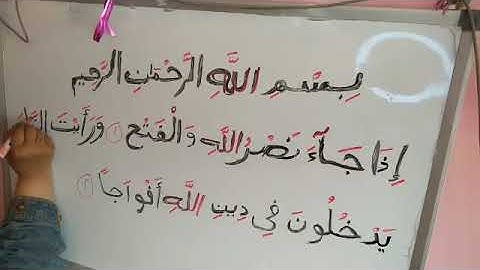 بِسْمِ اللَّهِ الرَّحْمَٰنِ الرَّحِيمِ
إِذَا جَآءَ نَصْرُ اللَّهِ وَالْفَتْحُ ١ وَرَأَيْتَ
يَدْخُلُونَ فِي دِينِ اللَّهِ أَفْوَاجاً ٢